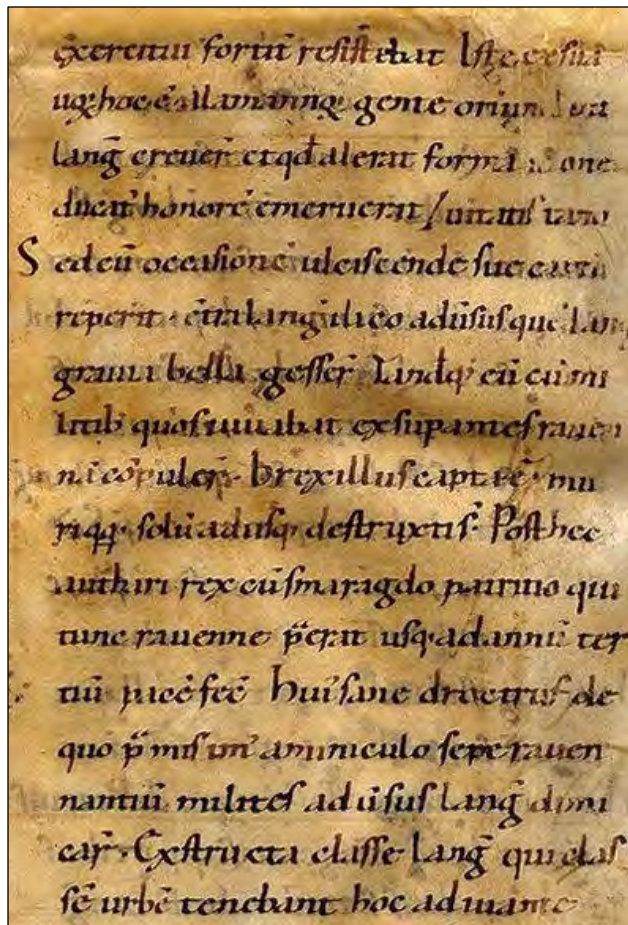 exercitui fortit̄ resistebat Iste ex sua
uoꝝ hoc ē allamannoꝝ gente oriun
lang̅ creuer̄ et qđ alerat forma
ducat' honorē emeruerat /
Sed cū occasionē ulciscende sue
reperit · cͣtra lang̅ ilico adūsus quē lang̅
grauia bella gesser̄ Tandēq; eū cū mi
litib' quos iuuabat exsuperantes rauen
nā cōpuler̄ · brexillus capta ē · mu
riq̨ · solū adusq; destructi s̄ · Post hec
authari rex cū smaragdo patritio qui
tunc rauenne p̄erat usq; ad annū ter
tiū pacē fec̄ hui' sane droctrus de
quo p̄misim' aminiculo sepe rauen
nantiū milites adūsus lang̅ dimi
car̄ · Exstructa classe lang̅ qui clas
sē urbē tenebant hoc adiuante